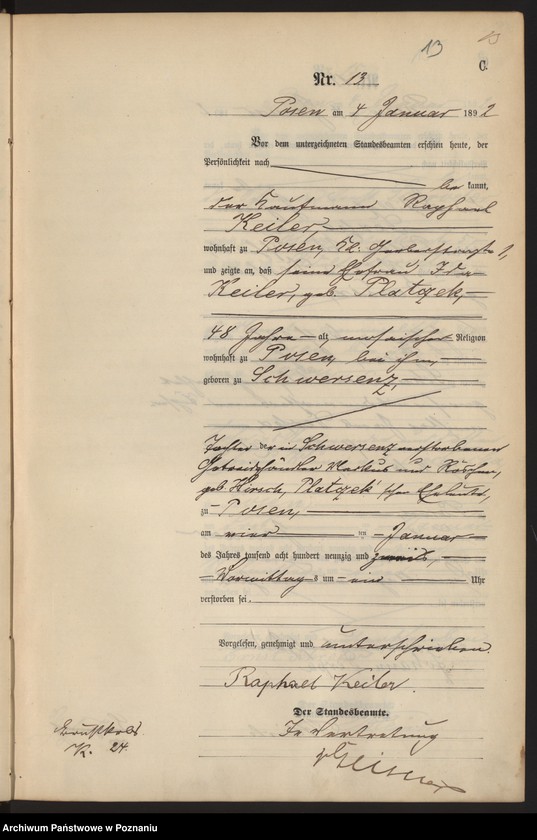 13
13
C.
Nr. 13
Posen am 4 Januar 1892
Vor dem unterzeichneten Standesbeamten erschien heute, der
Persönlichkeit nach
be kannt,
der Kaufmann Raphael
Keiler,
wohnhaft zu Posen, Kl. Gerberstraße
und zeigte an, daß seine Ehefrau Ida
Keiler, geb. Platzek,
48 Jahre alt, mosaischer Religion
wohnhaft zu Posen, bei ihm,
geboren zu Schwersenz,
Tochter der in Schwersenz verstorbenen
Getreidehändler Markus und Röschen,
geb. Hirsch, Platzek'schen Eheleute,
zu Posen,
am vier ten Januar
des Jahres tausend acht hundert neunzig und zwei,
Vormittags um ein Uhr
verstorben sei.
Vorgelesen, genehmigt und unterschrieben
Raphael Keiler.
Der Standesbeamte.
In Vertretung
K. 24.
Archiwum Państwowe w Poznaniu